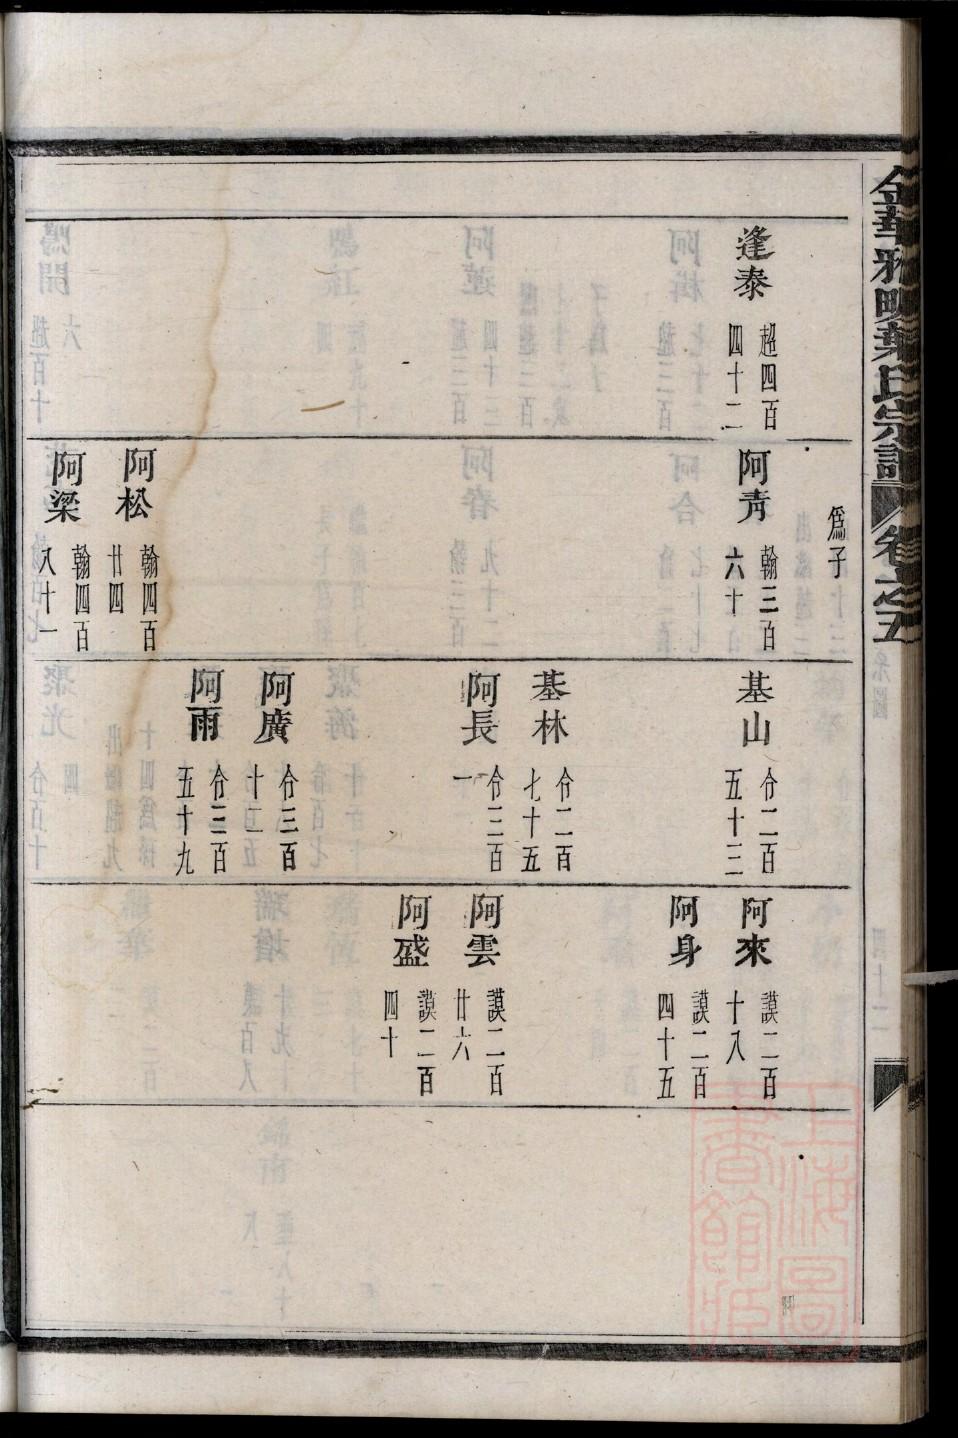 金華雅畈葉氏宗譜 卷之五
逢泰 超四百四十二
爲子
阿靑 翰三百六十
阿松 翰四百廿四
阿梁 翰四百八十一
基山 仒二百五十三
基林 仒二百七十五
阿長 仒三百一
阿廣 仒三百十二
阿雨 仒三百五十九
阿來 謨二百十八
阿身 謨二百四十五
阿雲 謨二百廿六
阿盛 謨二百四十
上海圖書館藏